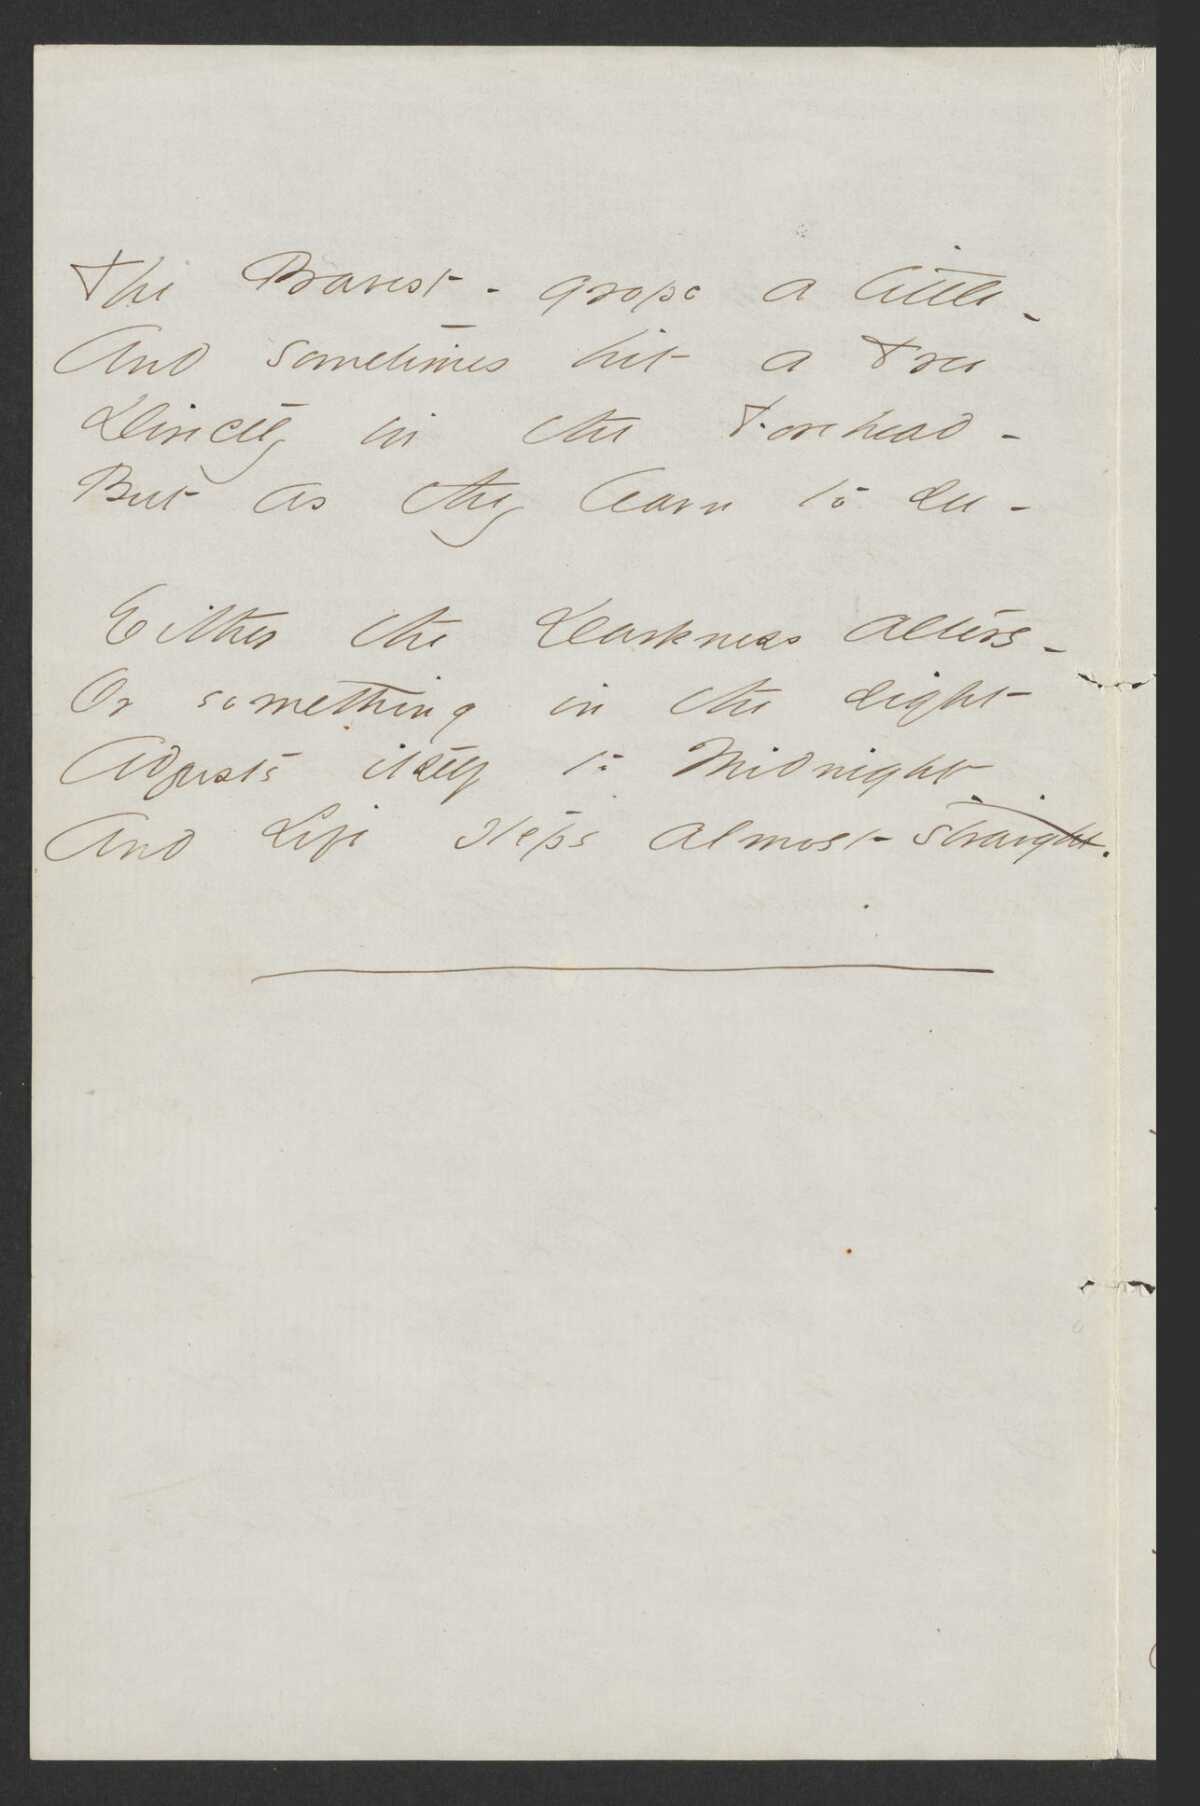 The Bravest - grope a little -
And sometimes hit a Tree
Directly in the Forehead -
But as they learn to see -
Either the Darkness alters -
Or something in the sight
Adjusts itself to Midnight -
And Life steps almost straight.